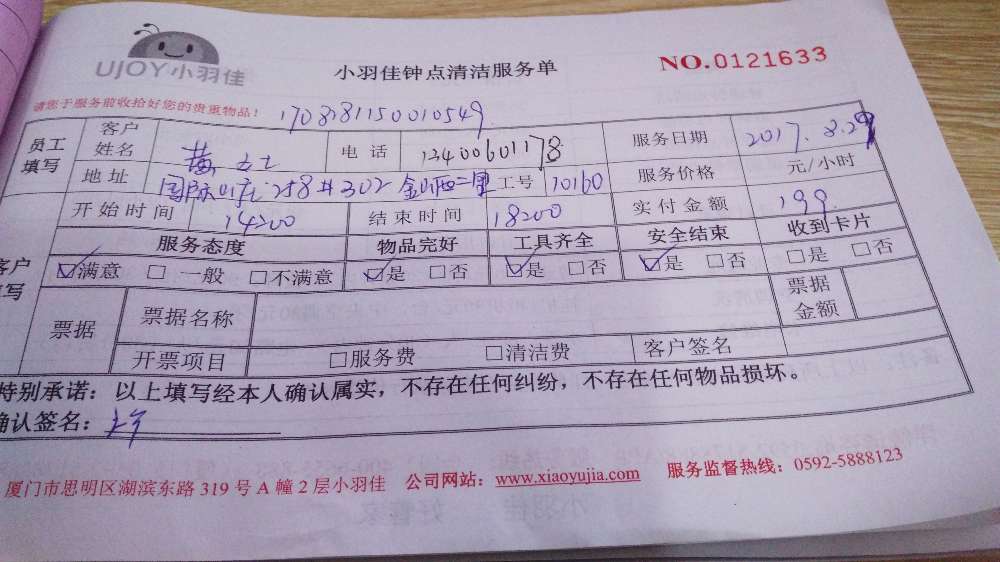 UJOY小羽佳
小羽佳钟点清洁服务单
NO.0121633
请您于服务前收拾好您的贵重物品！
1708281150010549
员工填写 客户姓名 黄女士 电话 13400601178 服务日期 2017.8.29
地址 258#302 金山西二里 工号 10160 服务价格 元/小时
开始时间 14:00 结束时间 18:00 实付金额 199
服务态度 物品完好 工具齐全 安全结束 收到卡片
客户填写 ☑满意 □一般 □不满意 ☑是 □否 ☑是 □否 ☑是 □否 □是 □否
票据 票据名称 票据金额
开票项目 □服务费 □清洁费 客户签名
特别承诺：以上填写经本人确认属实，不存在任何纠纷，不存在任何物品损坏。
确认签名：
厦门市思明区湖滨东路 319 号 A 幢 2 层小羽佳 公司网站：www.xiaoyujia.com 服务监督热线：0592-5888123